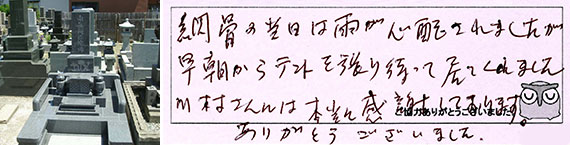 納骨の当日は雨が心配されましたが
早朝からテントを張り待って居てくれました
川村さんには本当に感謝しております。
ご協力ありがとうございました
ありがとうございました。